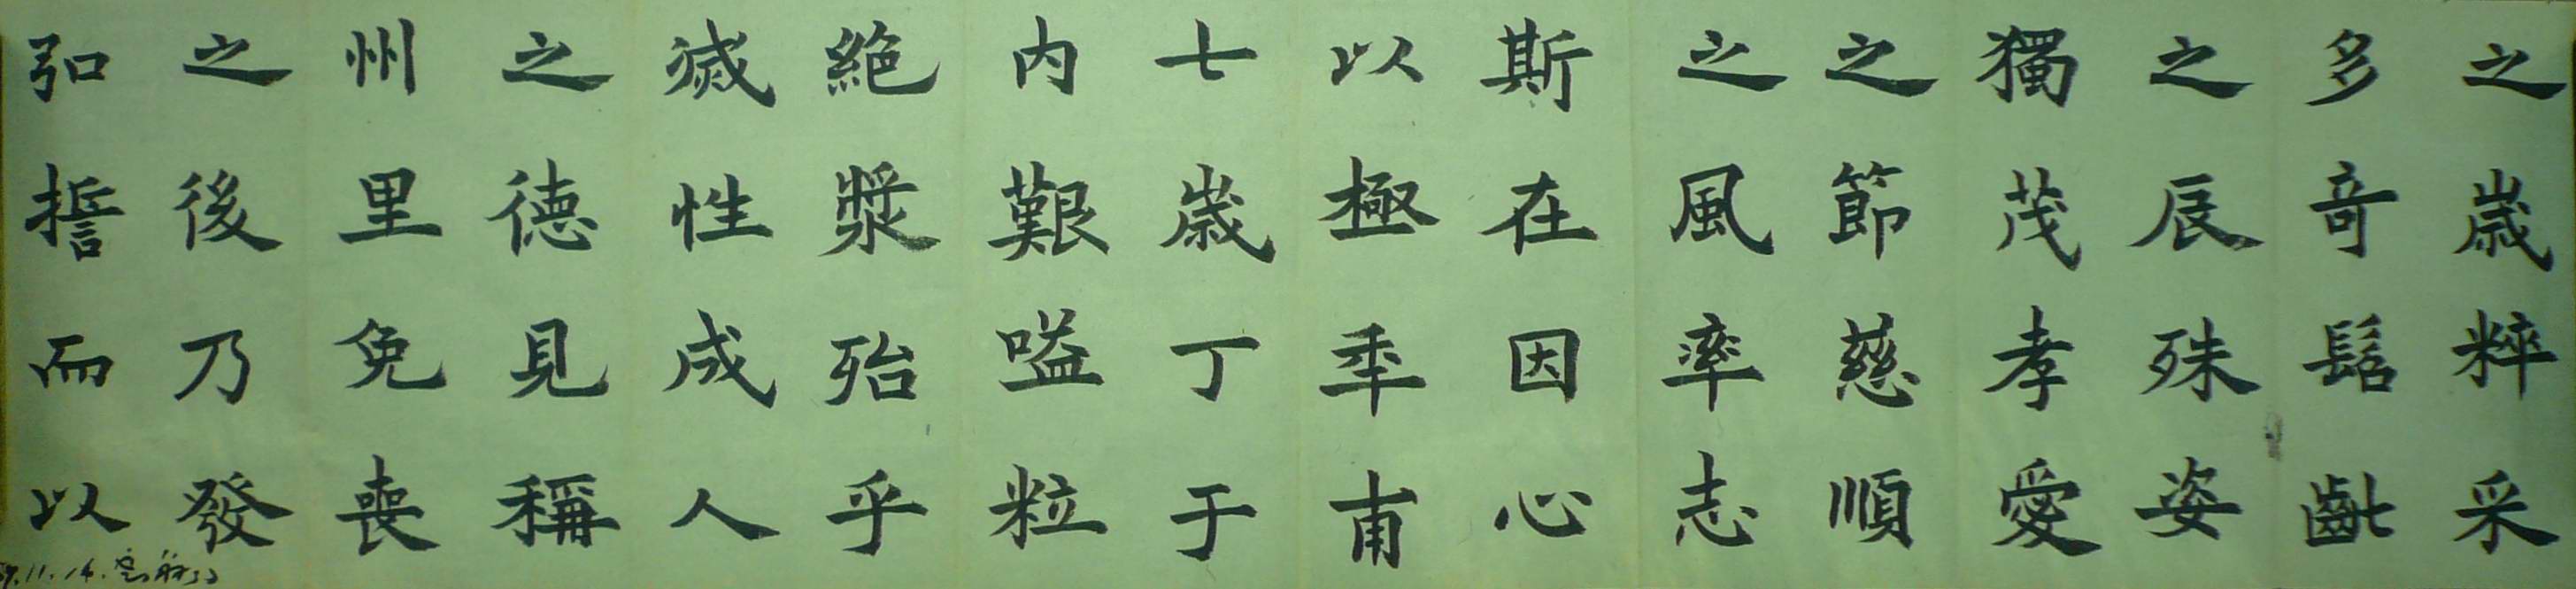 之歲粹采
多奇髫齓
之辰殊姿
獨茂孝愛
之節慈順
之風率志
斯在因心
以極年甫
七歲丁于
内艱嗌粒
絶漿殆乎
滅性成人
之德見稱
州里免喪
之後乃發
弘誓而以
11.14.